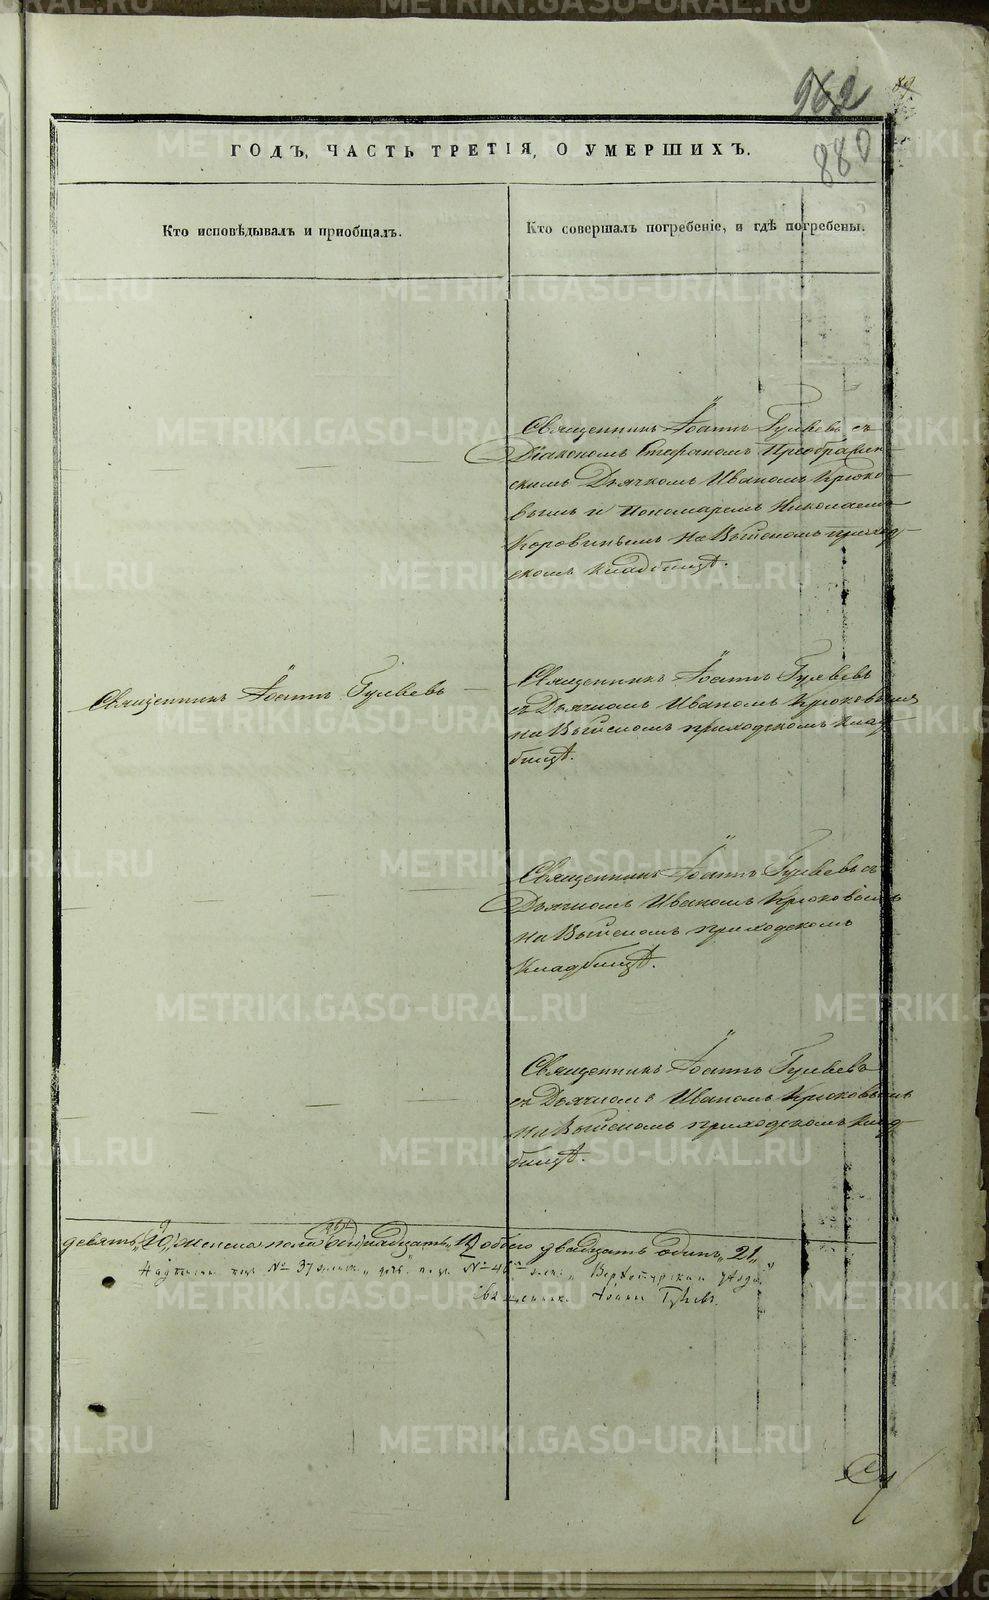 962
89
880
ГОДЪ, ЧАСТЬ ТРЕТІЯ, О УМЕРШИХЪ.
Кто исповѣдывалъ и пріобщалъ.
Кто совершалъ погребеніе, и гдѣ погребены.
Священникъ Іоаннъ Гуляевъ съ
Діакономъ Стефаномъ Преображен-
скимъ Дьячкомъ Иваномъ Крюко-
вымъ и Пономаремъ Николаемъ
Коровинымъ на Выйскомъ приход-
скомъ кладбищѣ.
Священникъ Іоаннъ Гуляевъ
Священникъ Іоаннъ Гуляевъ
съ Дьячкомъ Иваномъ Крюковымъ
на Выйскомъ приходскомъ клад-
бищѣ.
Священникъ Іоаннъ Гуляевъ съ
Дьячкомъ Иваномъ Крюковымъ
на Выйскомъ приходскомъ
кладбищѣ.
Священникъ Іоаннъ Гуляевъ
съ Дьячкомъ Иваномъ Крюковымъ
на Выйскомъ приходскомъ клад-
бищѣ.
девять женска пола двенадцать 12 обоего двадцать одинъ 21
№ 37 № 46 Верхотурскаго уезда
Священник Іоаннъ Гуляевъ.
METRIKI.GASO-URAL.RU